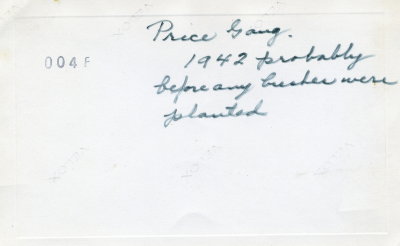 Price Gang.
004F
1942 probably
before any bushes were
planted